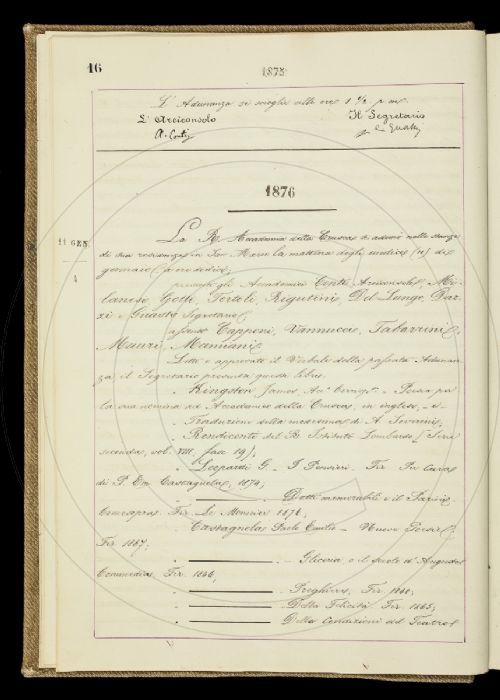 16
1875
L'Adunanza si scioglie alle ore 1 1/2 p. m.
L'Arciconsolo
Il Segretario
A. Conti
1876
11 GEN
4
La R. Accademia della Crusca si adunò nelle stanze
di sua residenza in San Marco la mattina degli undici (11) di
gennaio a ore dodici,
presenti gli Accademici Conti Arciconsolo, Mi-
lanesi, Gotti, Tortoli, Rigutini, Del Lungo, Daz-
zi e Guasti Segretario;
assenti Capponi, Vannucci, Tabarrini,
Mauri, Mamiani.
Letto e approvato il Verbale della passata Adunan-
za, il Segretario presenta questi libri:
Kingston James, Poesia per
la sua nomina ad Accademico della Crusca, in inglese, e
Traduzione della medesima di A.
Rendiconti del R. Istituto Lombardo, Serie
seconda, vol. VIII, fasc. 19;
Leopardi G. I Pensieri. Fir. Per cura
di P. Em. Castagnola, 1874;
Detti memorabili e il
Fir. Le Monnier 1876;
Castagnola Paolo Emilio - Nuove Poesie,
Fir. 1867;
Gliceria, o il
Commedia, Fir. 1866;
Preghiere, Fir.
Della Felicità Fir. 1865;
Delle Condizioni del Teatro